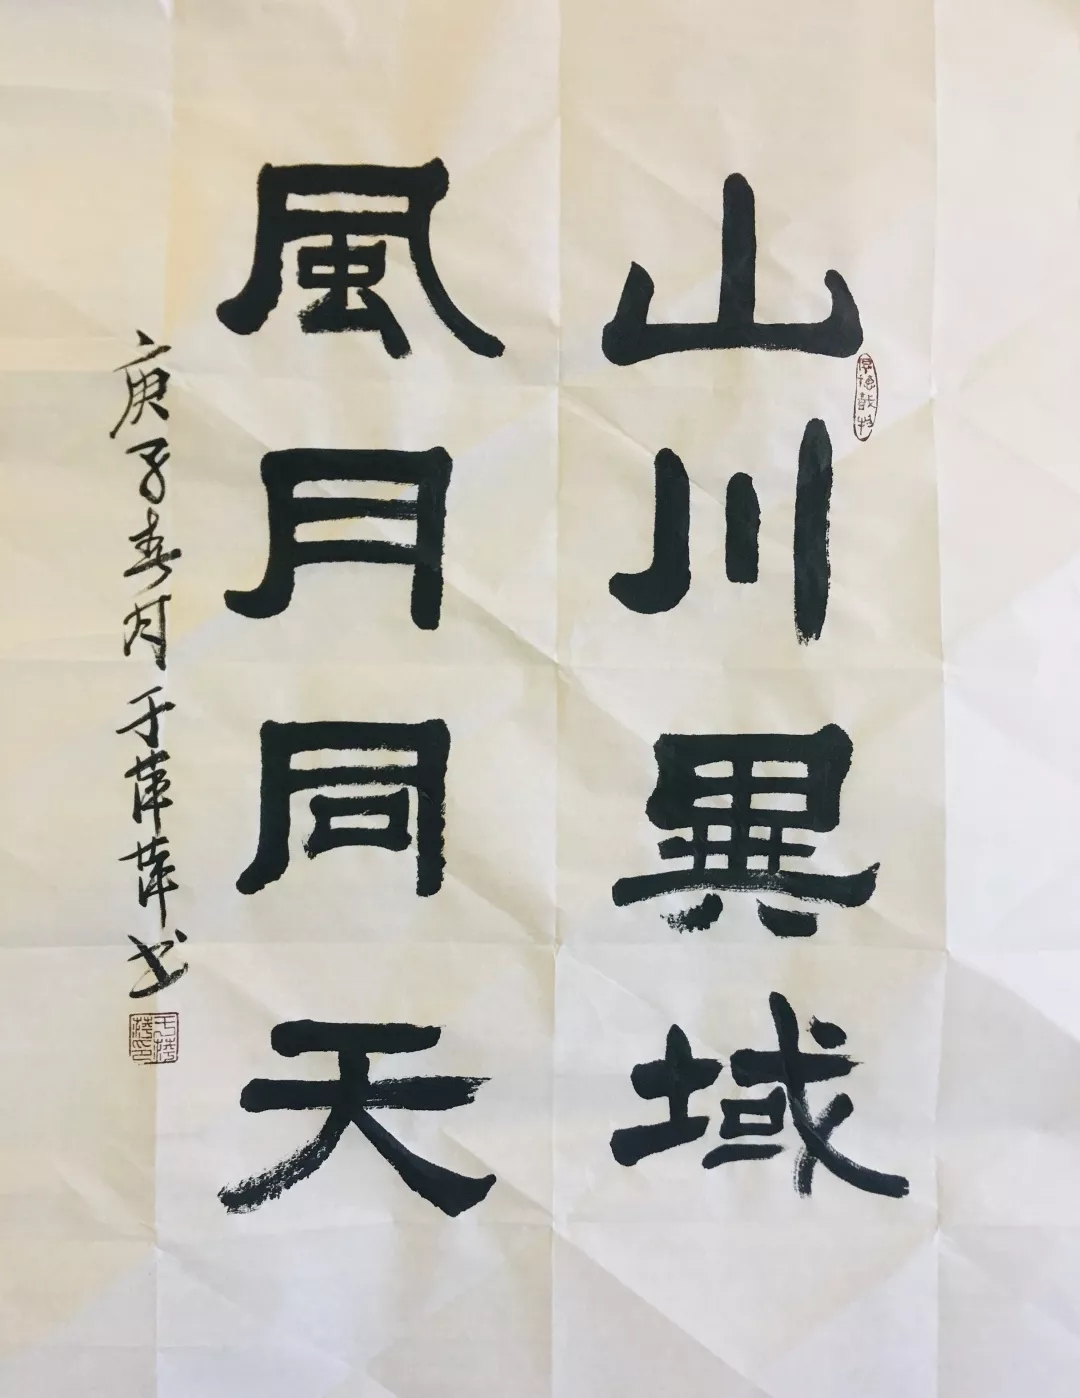 山川異域
風月同天
庚子春月于萍萍书